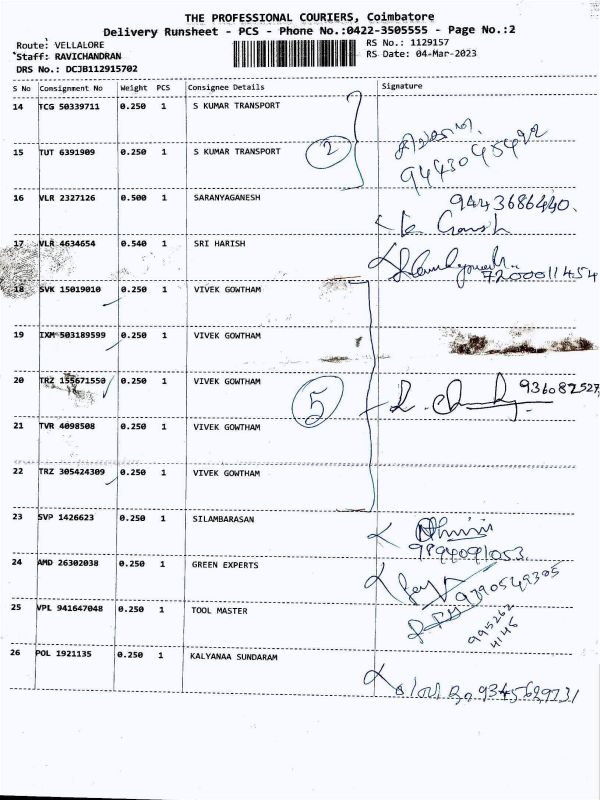 THE PROFESSIONAL COURIERS, Coimbatore
Delivery Runsheet - PCS - Phone No.:0422-3505555 - Page No.:2
Route: VELLALORE RS No.: 1129157
Staff: RAVICHANDRAN RS Date: 04-Mar-2023
DRS No.: DCJB112915702
S No Consignment No Weight PCS Consignee Details Signature
14 TCG 50339711 0.250 1 S KUMAR TRANSPORT
15 TUT 6391909 0.250 1 S KUMAR TRANSPORT 2
16 VLR 2327126 0.500 1 SARANYAGANESH 9443686440.
17 VLR 4634654 0.540 1 SRI HARISH 7200011454
18 SVK 15019010 0.250 1 VIVEK GOWTHAM
19 IXM 503189599 0.250 1 VIVEK GOWTHAM
20 TRZ 155671550 0.250 1 VIVEK GOWTHAM 5
21 TVR 4098508 0.250 1 VIVEK GOWTHAM
22 TRZ 305424309 0.250 1 VIVEK GOWTHAM
23 SVP 1426623 0.250 1 SILAMBARASAN 9894091053.
24 AMD 26302038 0.250 1 GREEN EXPERTS 9790549305
25 VPL 941647048 0.250 1 TOOL MASTER 995262
4145
26 POL 1921135 0.250 1 KALYANAA SUNDARAM